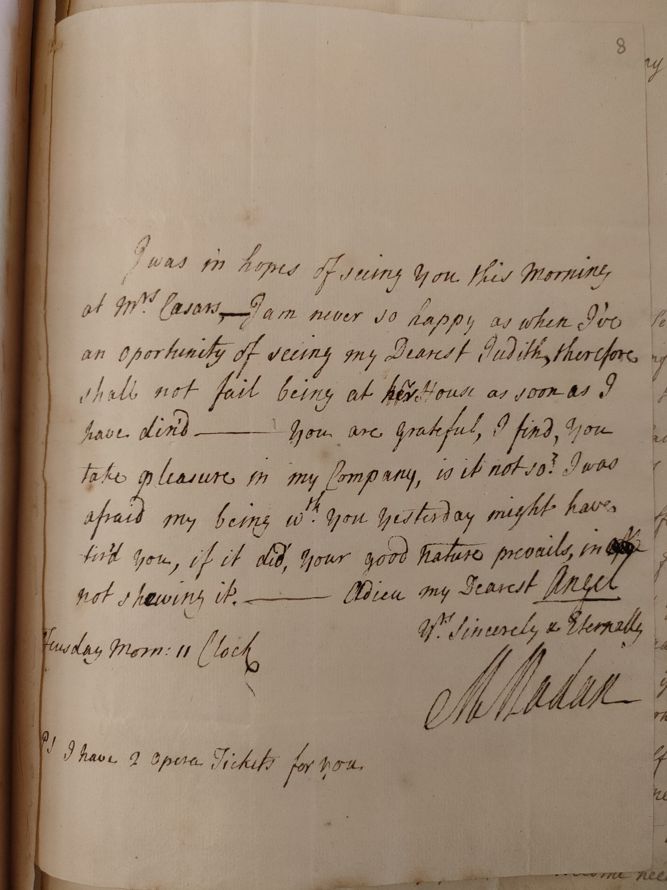 8
I was in hopes of seeing You this Morning
at Mrs Casars, — I am never so happy as when I've
an oportunity of seeing my Dearest Judith, therefore
shall not fail being at her House as soon as I
have din'd ——— You are grateful, I find, You
take pleasure in my Company, is it not so? I was
afraid my being wth. You Yesterday might have
tir'd You, if it did, Your good nature prevails, in
not shewing it. ——— Adieu my Dearest Angel
Yrs Sincerely & Eternally
Tuesday Morn: 11 Clock
M Madan
PS I have 2 Opera Tickets for you